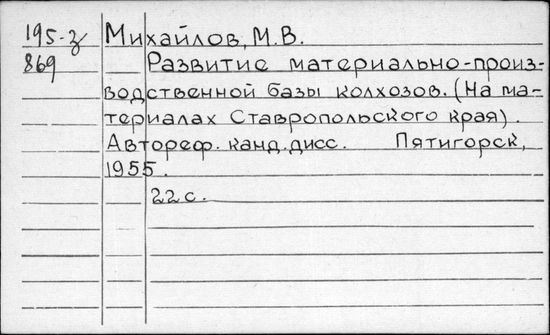 195-з Михайлов, М.В.
869 Развитие материально-произ-
водственной базы колхозов. (На ма-
териалах Ставропольского края).
Автореф. канд. дисс. Пятигорск,
1955.
22 с.